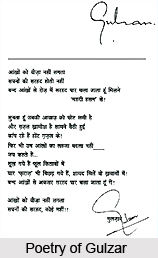 Gulzar.
आंखों को वीज़ा नहीं लगता
सपनों की सरहद होती नहीं
बन्द आंखों से रोज़ मैं सरहद पार चला जाता हूं मिलने
"मेहदी हसन" से!
सुनता हूं उनकी आवाज़ को चोट लगी है
और ग़ज़ल ख़ामोश है सामने बैठी हुई
कांप रहे हैं होंट ग़ज़ल के!
फिर भी उन आंखों का लहजा बदला नहीं—
जब कहते हैं...
सूख गये हैं फूल किताबों में
यार "फ़राज़" भी बिछड़ गये हैं, शायद मिले वो ख़्वाबों में!
बन्द आंखों से अक्सर सरहद पार चला जाता हूं मैं!
आंखों को वीज़ा नहीं लगता
सपनों की सरहद, कोई नहीं!!
गुलज़ार
Poetry of Gulzar